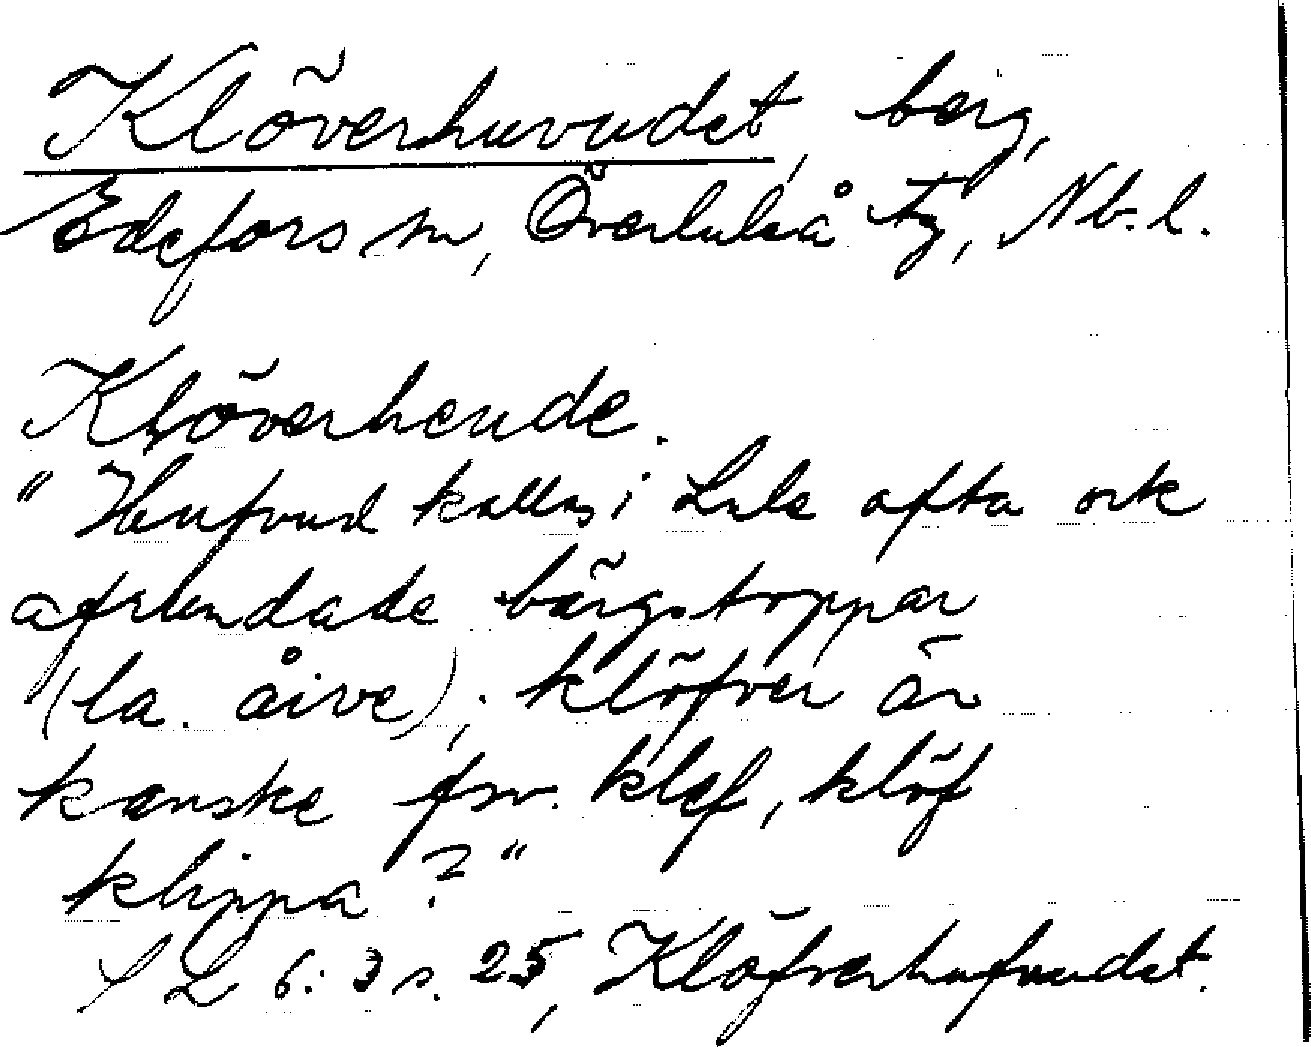 Klöverhuvudet, berg,
Edefors sn, Överluleå tg, Nb. l.
Klöverheude.
" Hufvud kallas i Lule ofta ock
afrundade bärgstoppar
(la. åive); klöfver är
kanske fsv. klef, klöf
klippa ? "
SL 6:3 s. 25, Klöfverhufvudet.